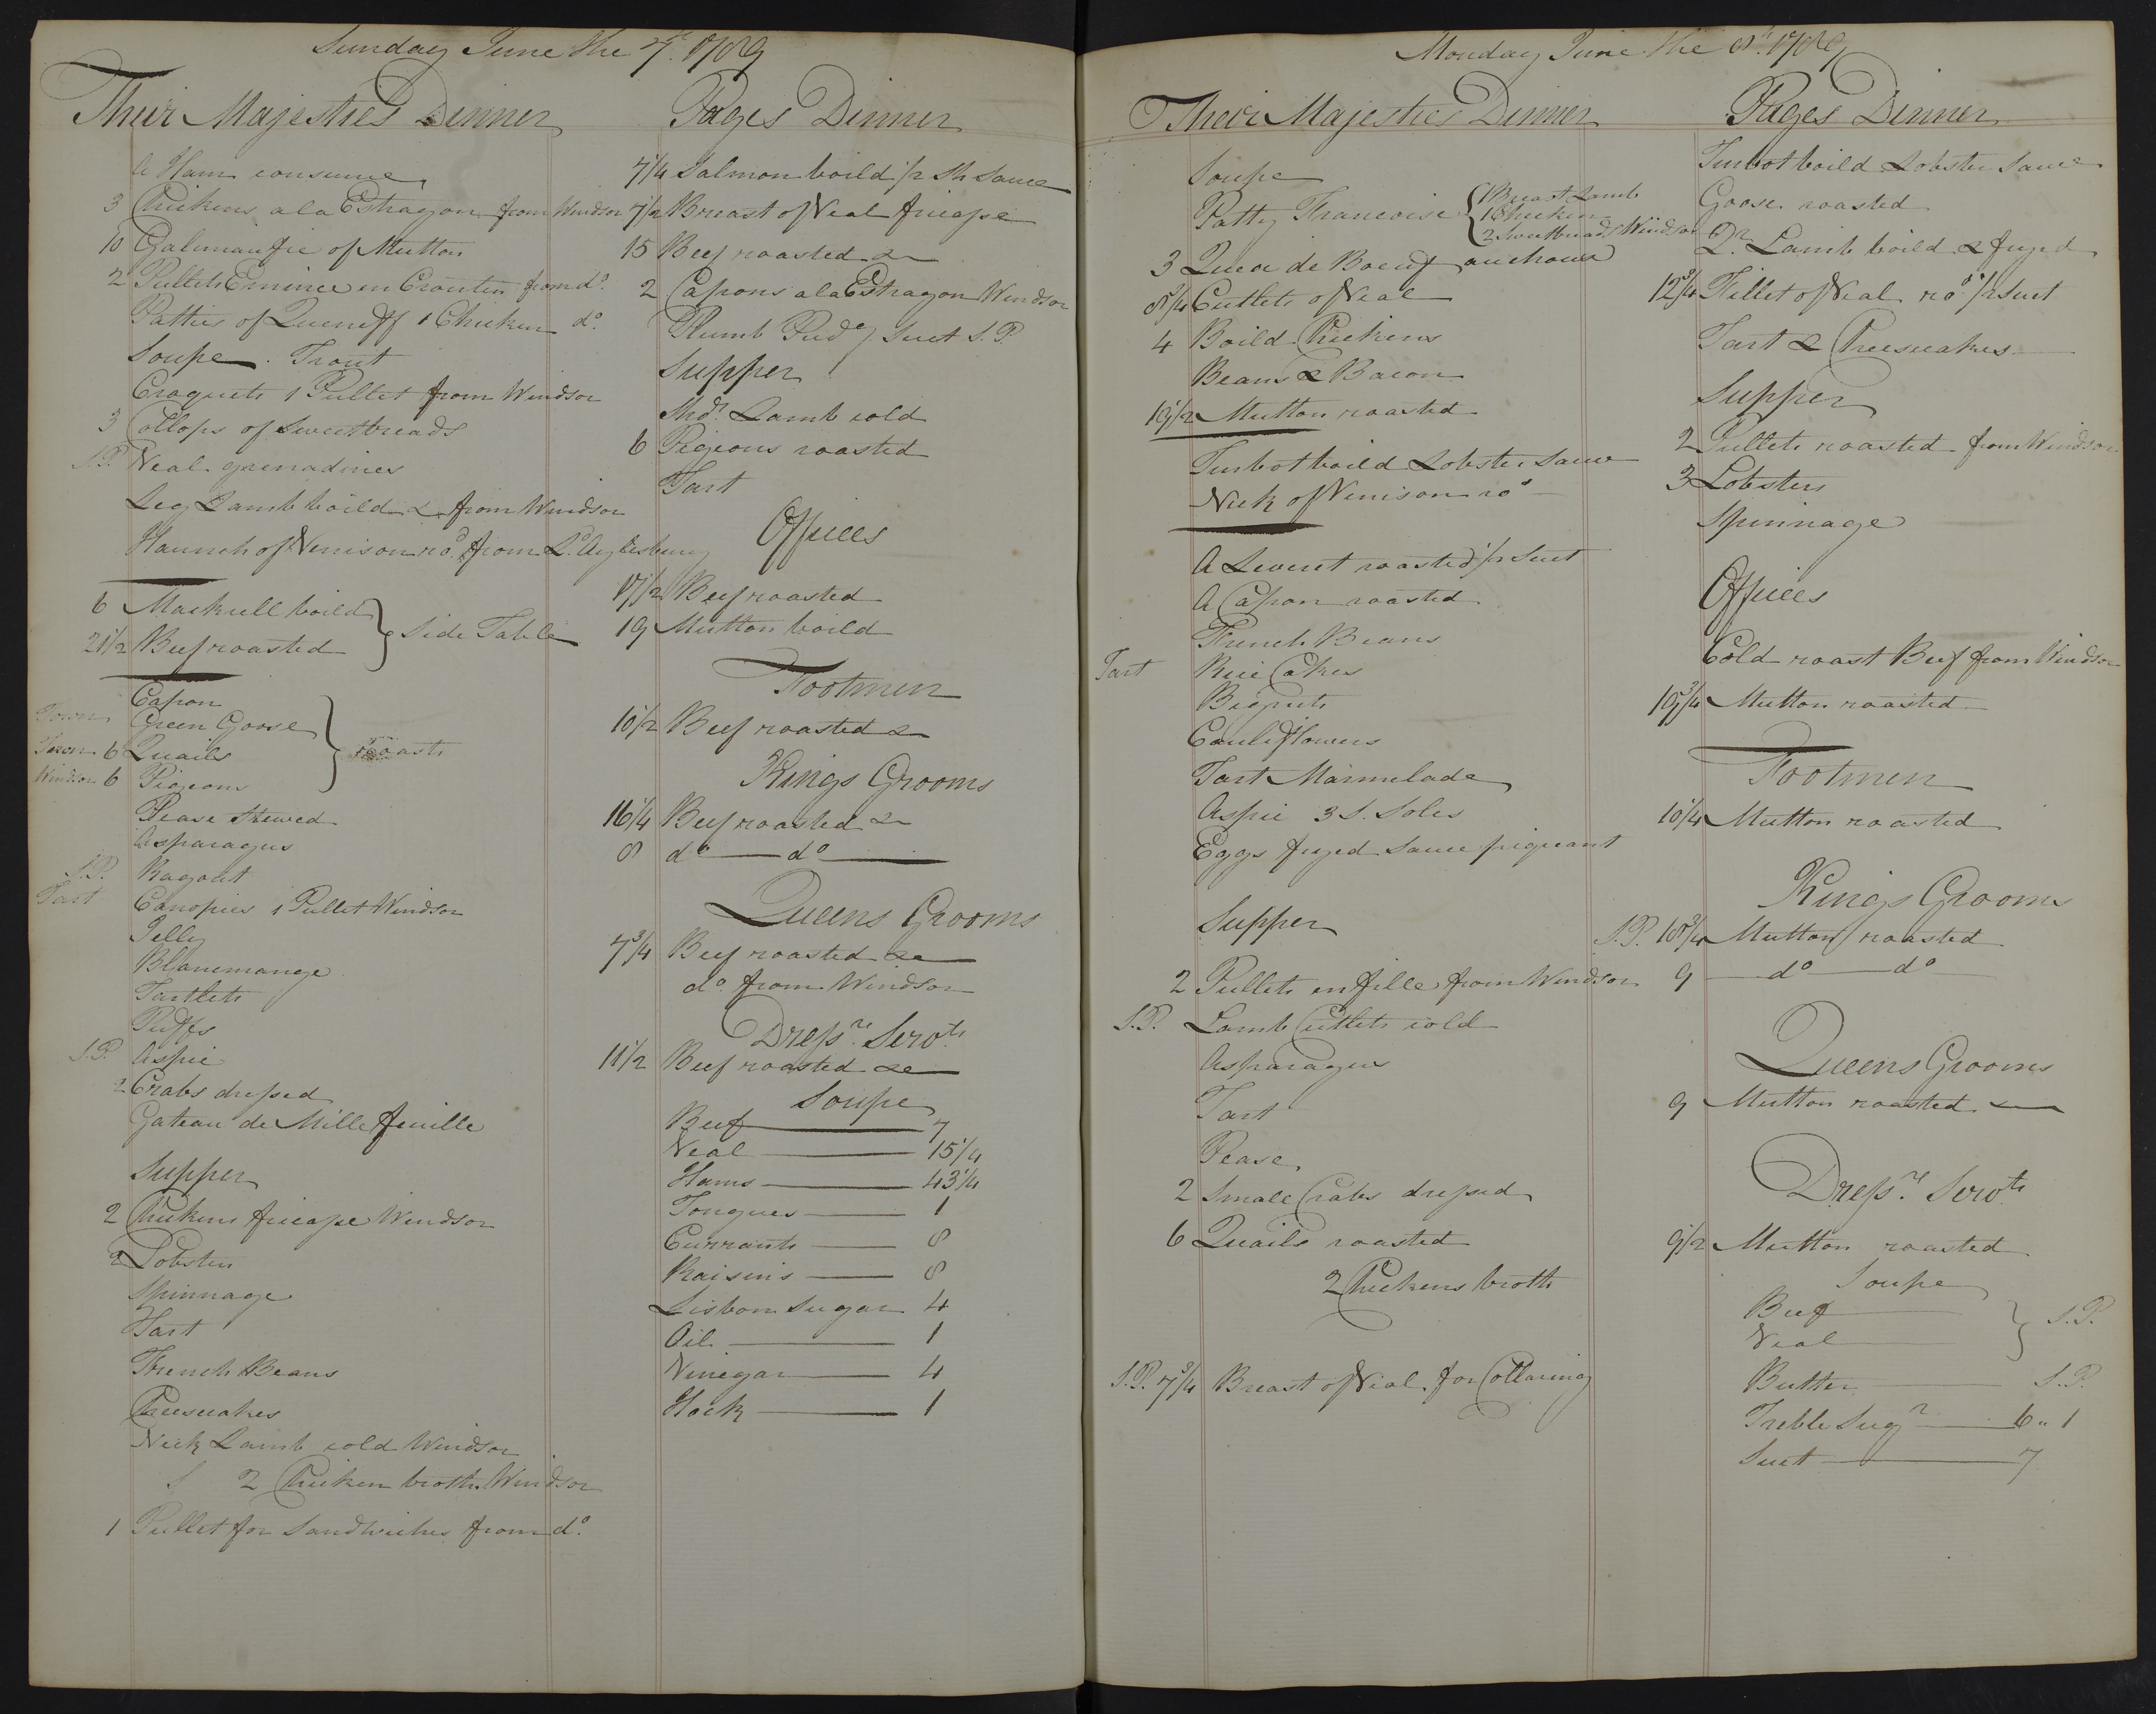 Sunday June the 7th 1789
Their Majesties Dinner
A Ham consume
3 Chickens a la Estragon from Windsor
10 Galimaufie of Mutton
2 Pullets Emince en Croutin from do.
Patties of Queneff 1 Chicken do.
Soupe. Trout
Croquets 1 Pullet from Windsor
3 Collops of Sweetbreads
S.P. Veal grenadines
Leg Lamb boild &c from Windsor
Haunch of Venison rod. from Ld. Aylesbury
6 Mackrell boild
21 1/2 Beef roasted
} Side Table
Capon
Town Green Goose
Town 6 Quails
Windsor 6 Pigeons
} roasts
Pease Stewed
Asparagus
S.P. Ragout
Tart Canopies 1 Pullet Windsor
Jelly
Blancmange
Tartlets
Puffs
S.P. Aspic
2 Crabs dressed
Gateau de Mille feuille
Supper
2 Chickens fricasse Windsor
2 Lobsters
Spinnage
Tart
French Beans
Cheescakes
Neck Lamb cold Windsor
2 Chicken broth Windsor
1 Pullet for Sandwiches from do.
Pages Dinner
7 1/4 Salmon boild 1/2 Sh Sauce
7 1/2 Breast of Veal fricasse
15 Beef roasted &c
2 Capons a la Estragon Windsor
Plumb Pudg Suet S.P.
Supper
Shdr. Lamb cold
6 Pigeons roasted
Tart
Offices
17 1/2 Beef roasted
19 Mutton boild
Footmen
10 1/2 Beef roasted &c
Kings Grooms
16 1/4 Beef roasted &c
8 do — do
Queens Grooms
7 3/4 Beef roasted &c
do. from Windsor
Dressrs. Servts
11 1/2 Beef roasted &c
Soupe
Beef — 7
Veal — 15 1/4
Hams — 43 1/4
Tongues — 1
Currants — 8
Raisins — 8
Lisbon Sugar 4
Oil — 1
Vinegar — 4
Hock — 1
Monday June the 8th. 1789
Their Majesties Dinner
Soupe
Patty Francoise { 1 Breast Lamb
1 Chicken
2 Sweetbreads Windsor
3 Queu de Boeuf au choux
8 3/4 Cutlets of Veal
4 Boild Chickens
Beans & Bacon
19 1/2 Mutton roasted
Turbot boild Lobster Sauce
Neck of Venison rod
A Leveret roasted 1/2 Suet
A Capon roasted
French Beans
Tart Rice Cakes
Bignets
Cauliflowers
Tart Marmelade
Aspic 3 S. Soles
Eggs fryed Sauce piquant
Supper
2 Pullets en fille from Windsor
S.P. Lamb Cutlets cold
Asparagus
Tart
Pease
2 Small Crabs dressed
6 Quails roasted
2 Chickens broth
S.P. 7 3/4 Breast of Veal for Collaring
Pages Dinner
Turbot boild Lobster Sauce
Goose roasted
Qr. Lamb boild & fryed
12 3/4 Fillet of Veal rod 1/2 Suet
Tart & Cheescakes
Supper
2 Pullets roasted from Windsor
3 Lobsters
Spinnage
Offices
Cold roast Beef from Windsor
19 3/4 Mutton roasted
Footmen
10 1/4 Mutton roasted
Kings Grooms
S.P. 18 3/4 Mutton roasted
9 — do — do
Queens Grooms
9 Mutton roasted
Dressrs. Servts
9 1/2 Mutton roasted
Soupe
Beef
Veal
} S.P.
Butter — S.P.
Treble Sugr — 6 " 1
Suet — 7